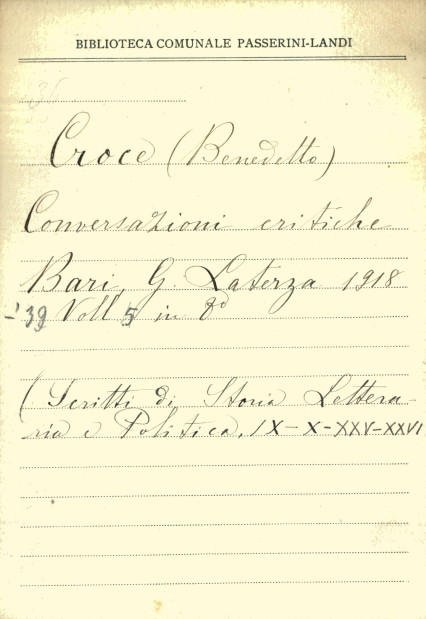 BIBLIOTECA COMUNALE PASSERINI-LANDI
Croce (Benedetto)
Conversazioni critiche
Bari, G. Laterza 1918
-'39 Voll 5 in 8°
(Scritti di Storia Lettera-
ria e Politica, IX-X-XXV-XXVI